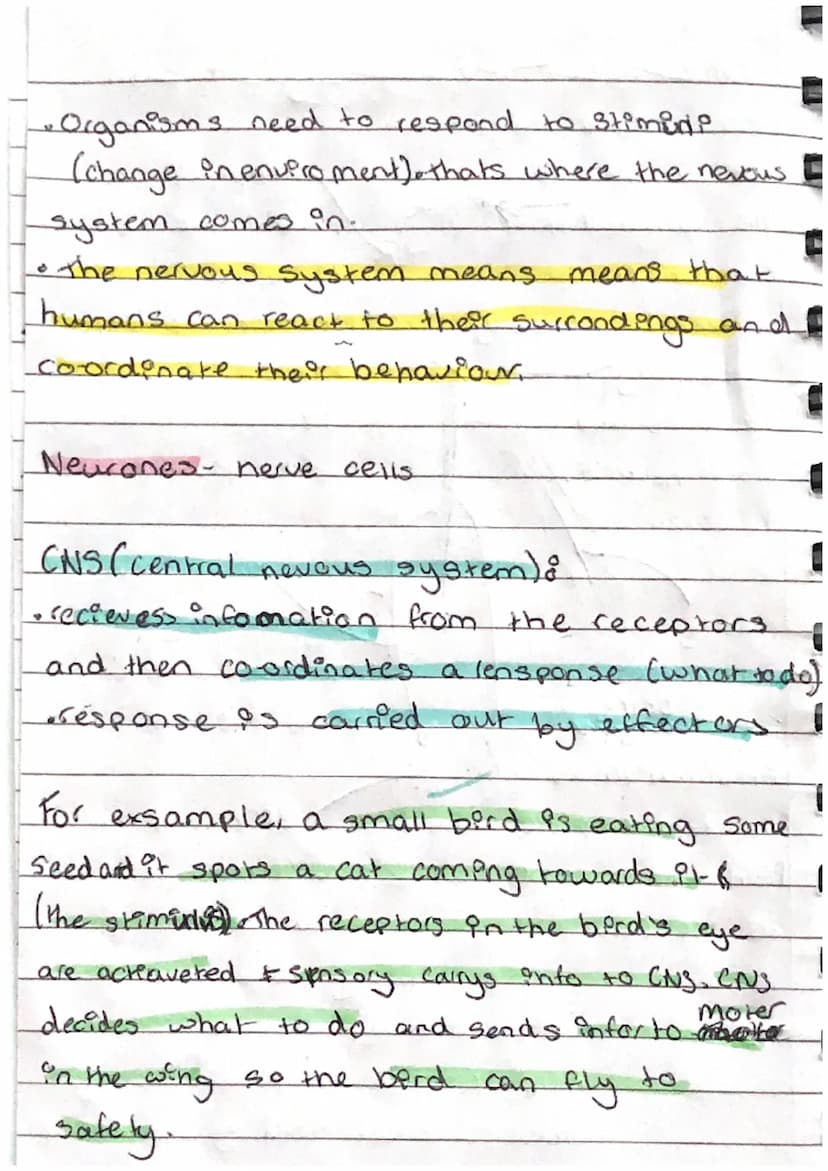 . Organisms need to respond to stimuli
(change in enviro ment). thats where the nevous
system comes in.
. the nervous system means means that
humans can react to their surrondings and
co-ordinate their behaviour.
Neurones - nerve cells
CNS (central nevous system):
. recieves infomation from the receptors
and then co-ordinates a rensponse (what to do)
. response is carried out by effectors
For exsample, a small bird is eating some
seed and it spots a cat coming towards it
(the stimulus). The receptors in the bird's eye
are actiaveted & sensory carrys info to CNS. CNS
decides what to do and sends infor to moter
in the wing so the bird can fly to
safety.